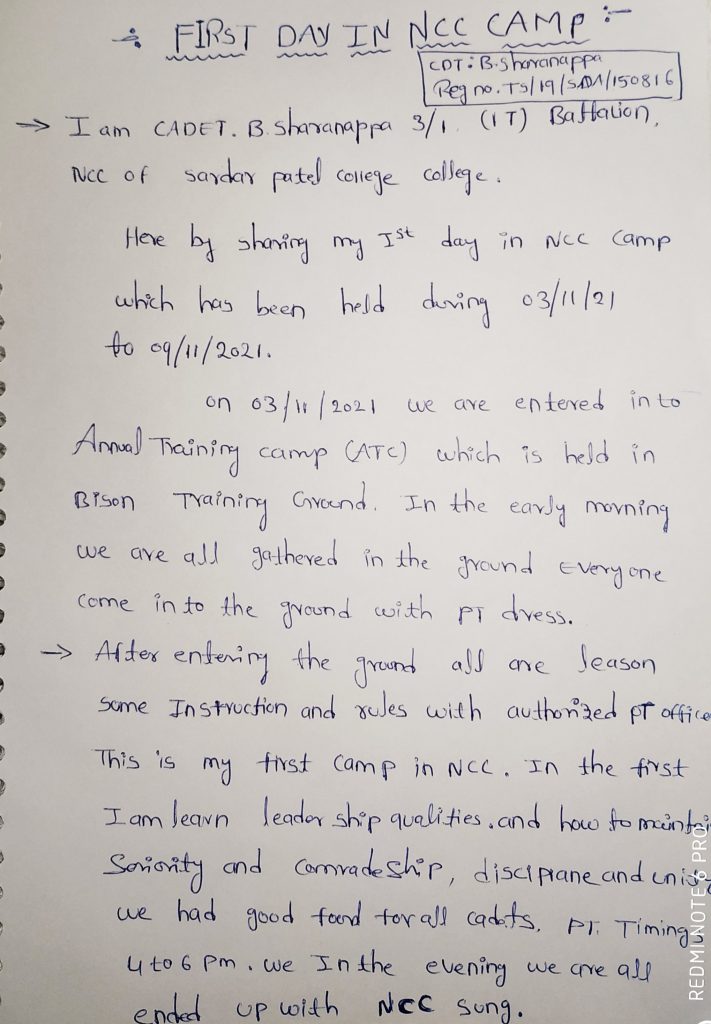 FIRST DAY IN NCC CAMP :-
CDT: B. Sharanappa
Reg no. TS/19/SDA/150816
→ I am CADET. B. Sharanappa 3/1 (IT) Battalion,
NCC of sardar patel college college.
Here by sharing my Ist day in NCC camp
which has been held during 03/11/21
to 09/11/2021.
on 03/11/2021 we are entered in to
Annual Training camp (ATC) which is held in
Bison Training Ground. In the early morning
we are all gathered in the ground Everyone
come in to the ground with PT dress.
→ After entering the ground all are leason
some Instruction and rules with authorized PT office
This is my first camp in NCC. In the first
I am learn leader ship qualities. and how to maintai
Seniority and comradeship, disciplane and unis
we had good food for all cadets. PT. Timings
4 to 6 Pm. we In the evening we are all
ended up with NCC song.
REDMI NOTE 6 PRO